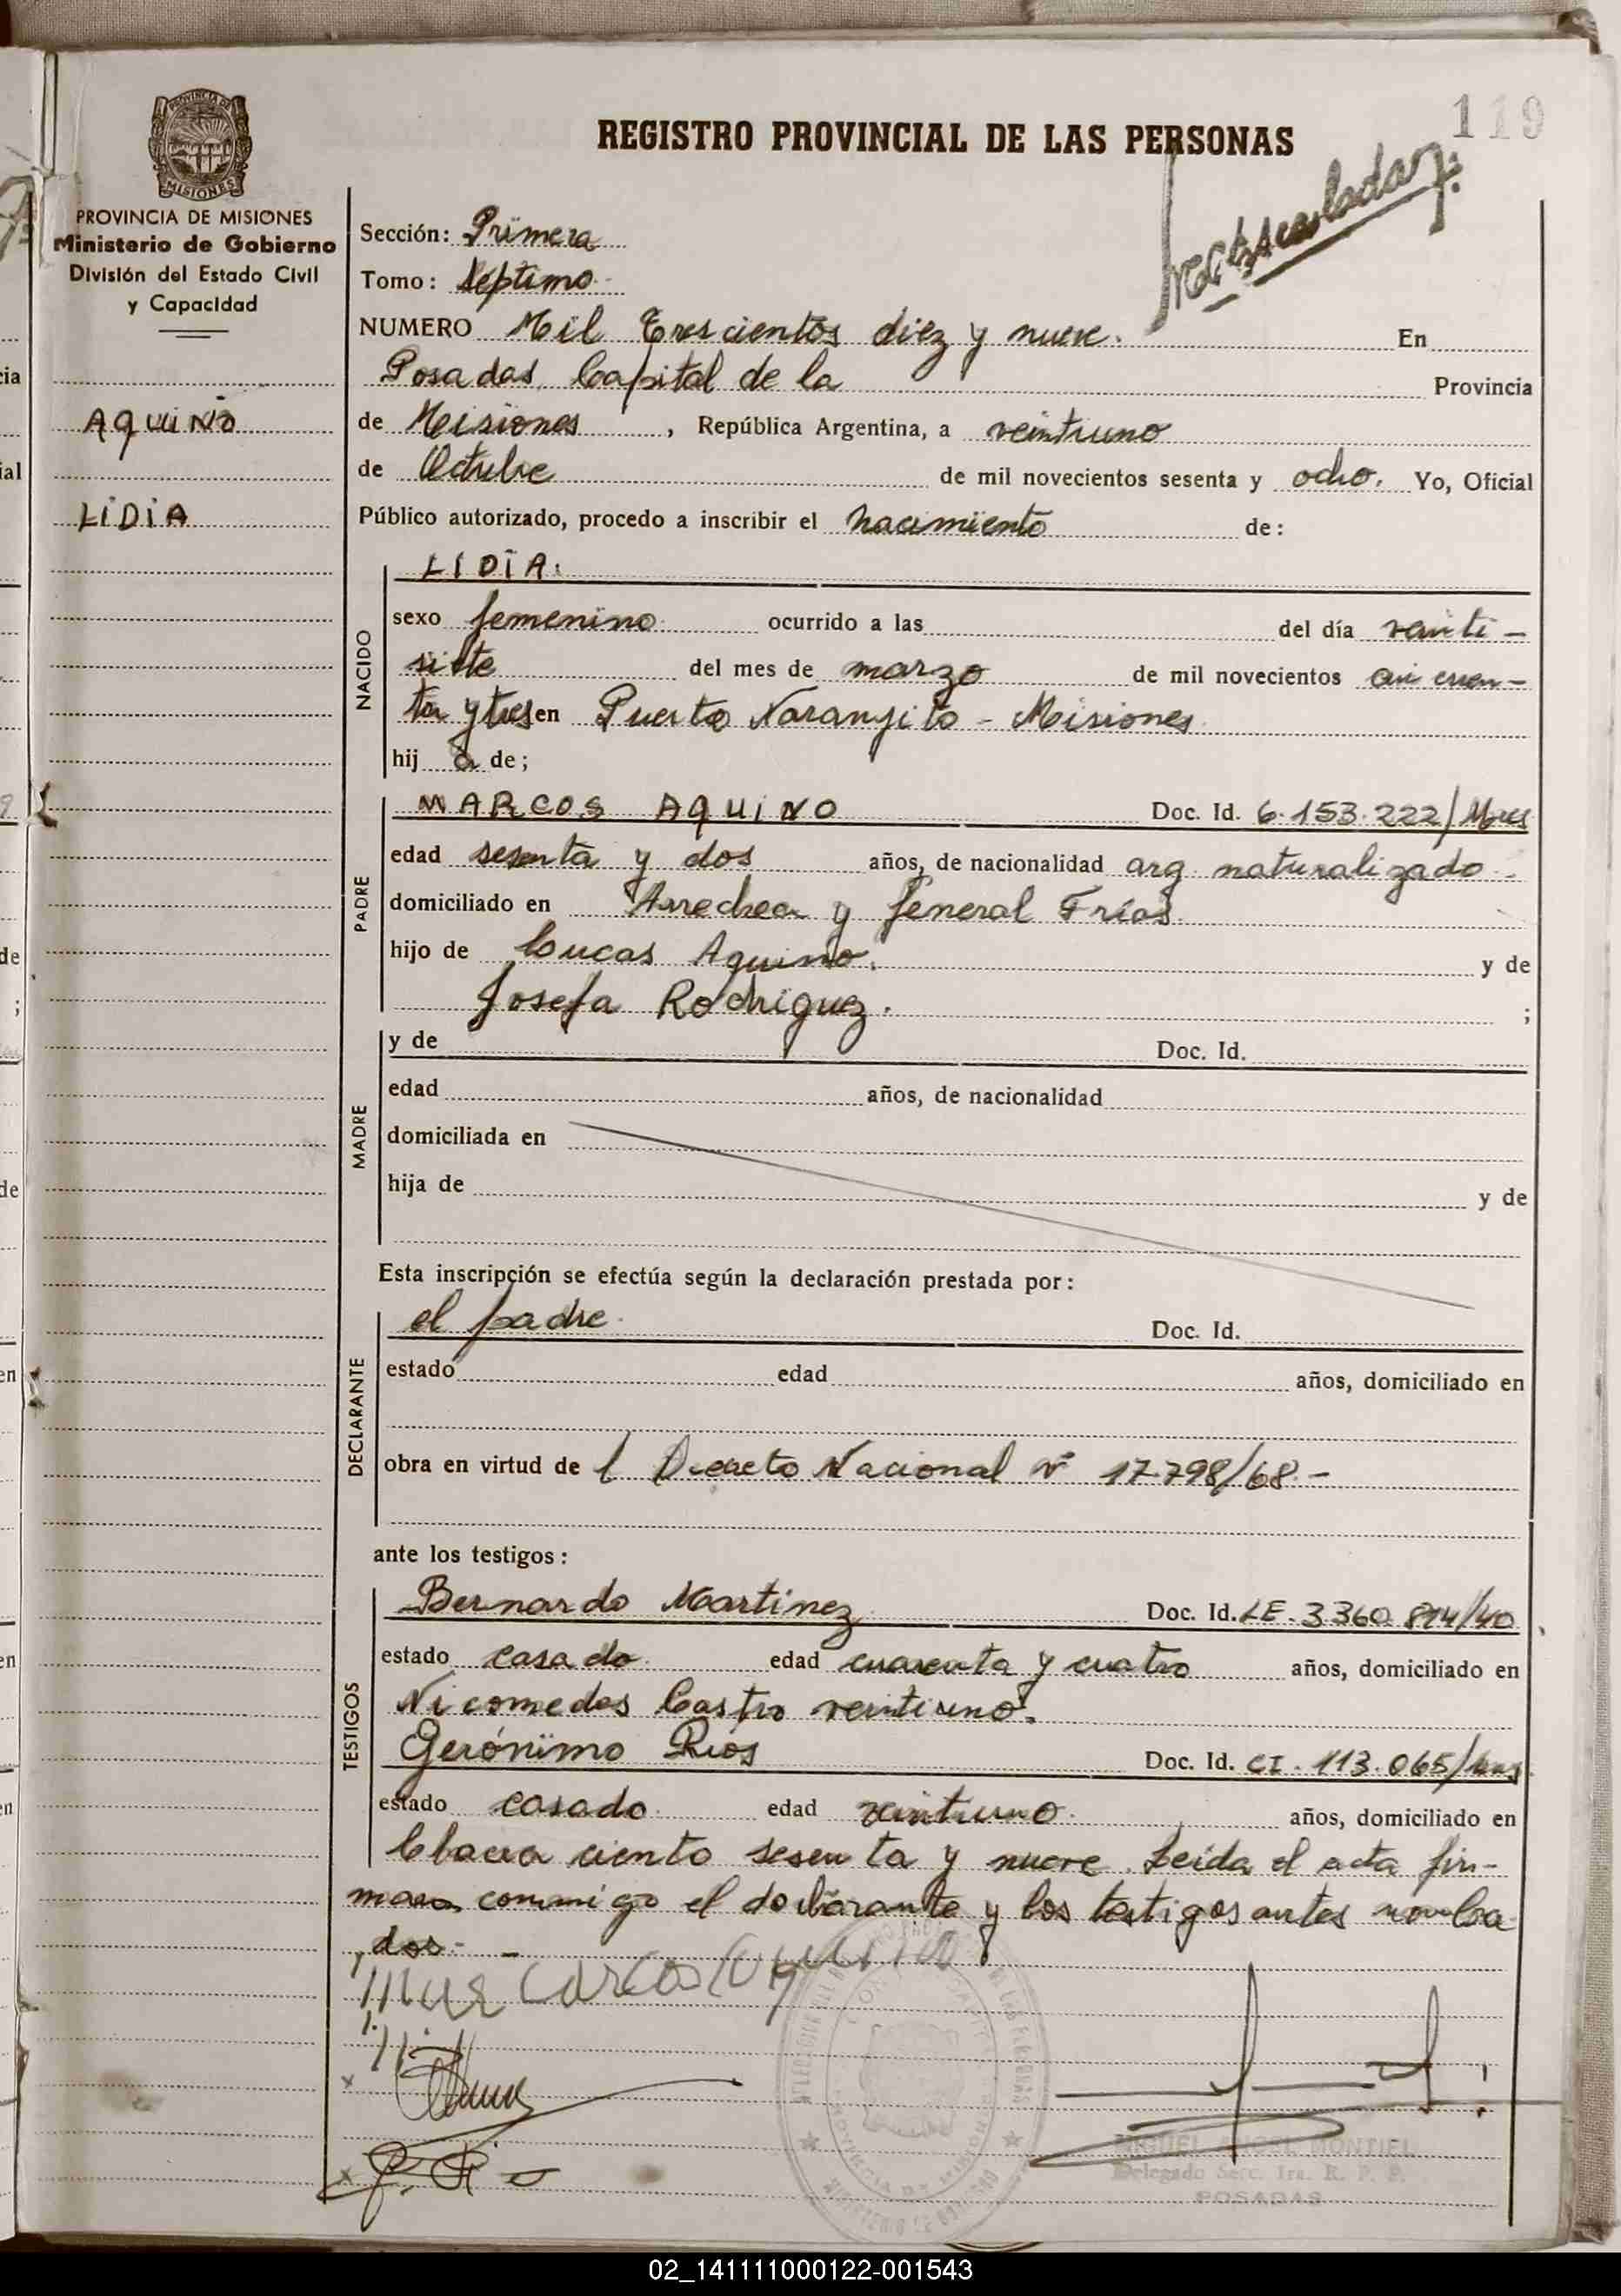 119
REGISTRO PROVINCIAL DE LAS PERSONAS
PROVINCIA DE MISIONES
PROVINCIA DE MISIONES
Ministerio de Gobierno
División del Estado Civil
y Capacidad
AQUINO
LIDIA
Sección: Primera
Tomo: Septimo
NUMERO Mil Trescientos diez y nueve. En
Posadas Capital de la Provincia
de Misiones, República Argentina, a veintiuno
de Octubre de mil novecientos sesenta y ocho. Yo, Oficial
Público autorizado, procedo a inscribir el nacimiento de:
NACIDO
LIDIA:
sexo femenino ocurrido a las del día veinti-
siete del mes de marzo de mil novecientos cincuen-
ta y tres en Puerto Naranjito - Misiones
hij a de;
PADRE
MARCOS AQUINO Doc. Id. 6.153.222/Mnes
edad sesenta y dos años, de nacionalidad arg. naturalizado.
domiciliado en Arrechea y General Frías
hijo de Lucas Aquino. y de
Josefa Rodriguez. ;
MADRE
y de Doc. Id.
edad años, de nacionalidad
domiciliada en
hija de y de
Esta inscripción se efectúa según la declaración prestada por:
DECLARANTE
el padre. Doc. Id.
estado edad años, domiciliado en
obra en virtud de l Decreto Nacional Nº 17.798/68.-
ante los testigos:
TESTIGOS
Bernardo Martinez Doc. Id. LE. 3.360.814/40
estado casado edad cuarenta y cuatro años, domiciliado en
Nicomedes Castro veintiuno.
Gerónimo Rios Doc. Id. CI. 113.065/Mnes
estado casado edad veintiuno años, domiciliado en
Chacra ciento sesenta y nueve. Leida el acta fir-
man conmigo el declarante y los testigos antes nombra
dos.-
MIGUEL ANGEL MONTIEL
Delegado Secc. 1ra. R. P. P.
POSADAS
02_141111000122-001543